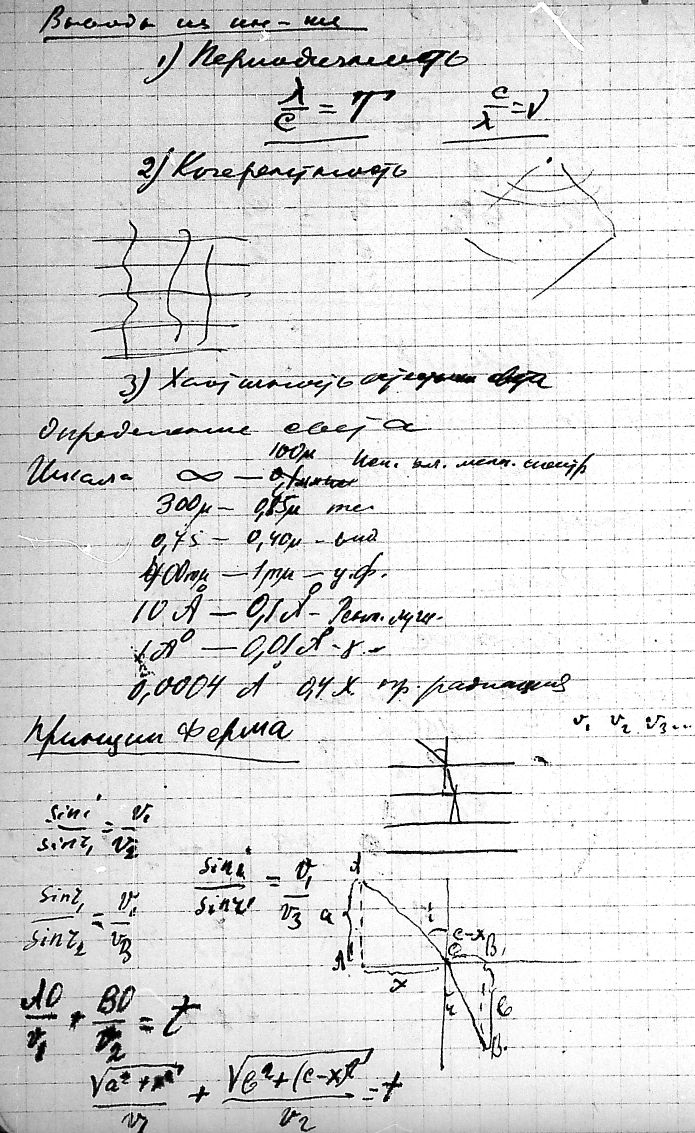 Выводы из ин-ии
1) Периодичность
λ/c = T   c/λ = ν
2) Когерентность
3) Хаотичность света
Определение света
100μ
Шкала ∞ — 0,1 эл. магн. спектр
300μ — 0,75μ
0,75 — 0,40μ - вид
400mμ — 1mμ — у.ф.
10 Å — 0,1 Å - Рент. луч.
1 Å — 0,01 Å - γ -
0,0004 Å 0,4 X пр. радиация
Принцип Ферма
v₁ v₂ v₃...
sin i / sin r₁ = v₁/v₂
sin i / sin r = v₁/v₃
sin r₁ / sin r₂ = v₂/v₃
A
a
i
c-x
O
B₁
A'
x
r
b
B
AO/v₁ + BO/v₂ = t
√(a² + x²)/v₁ + √(b² + (c-x)²)/v₂ = t